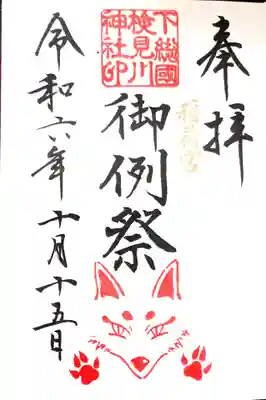 奉拝
下總國
検見川
神社印
御例祭
令和六年十月十五日